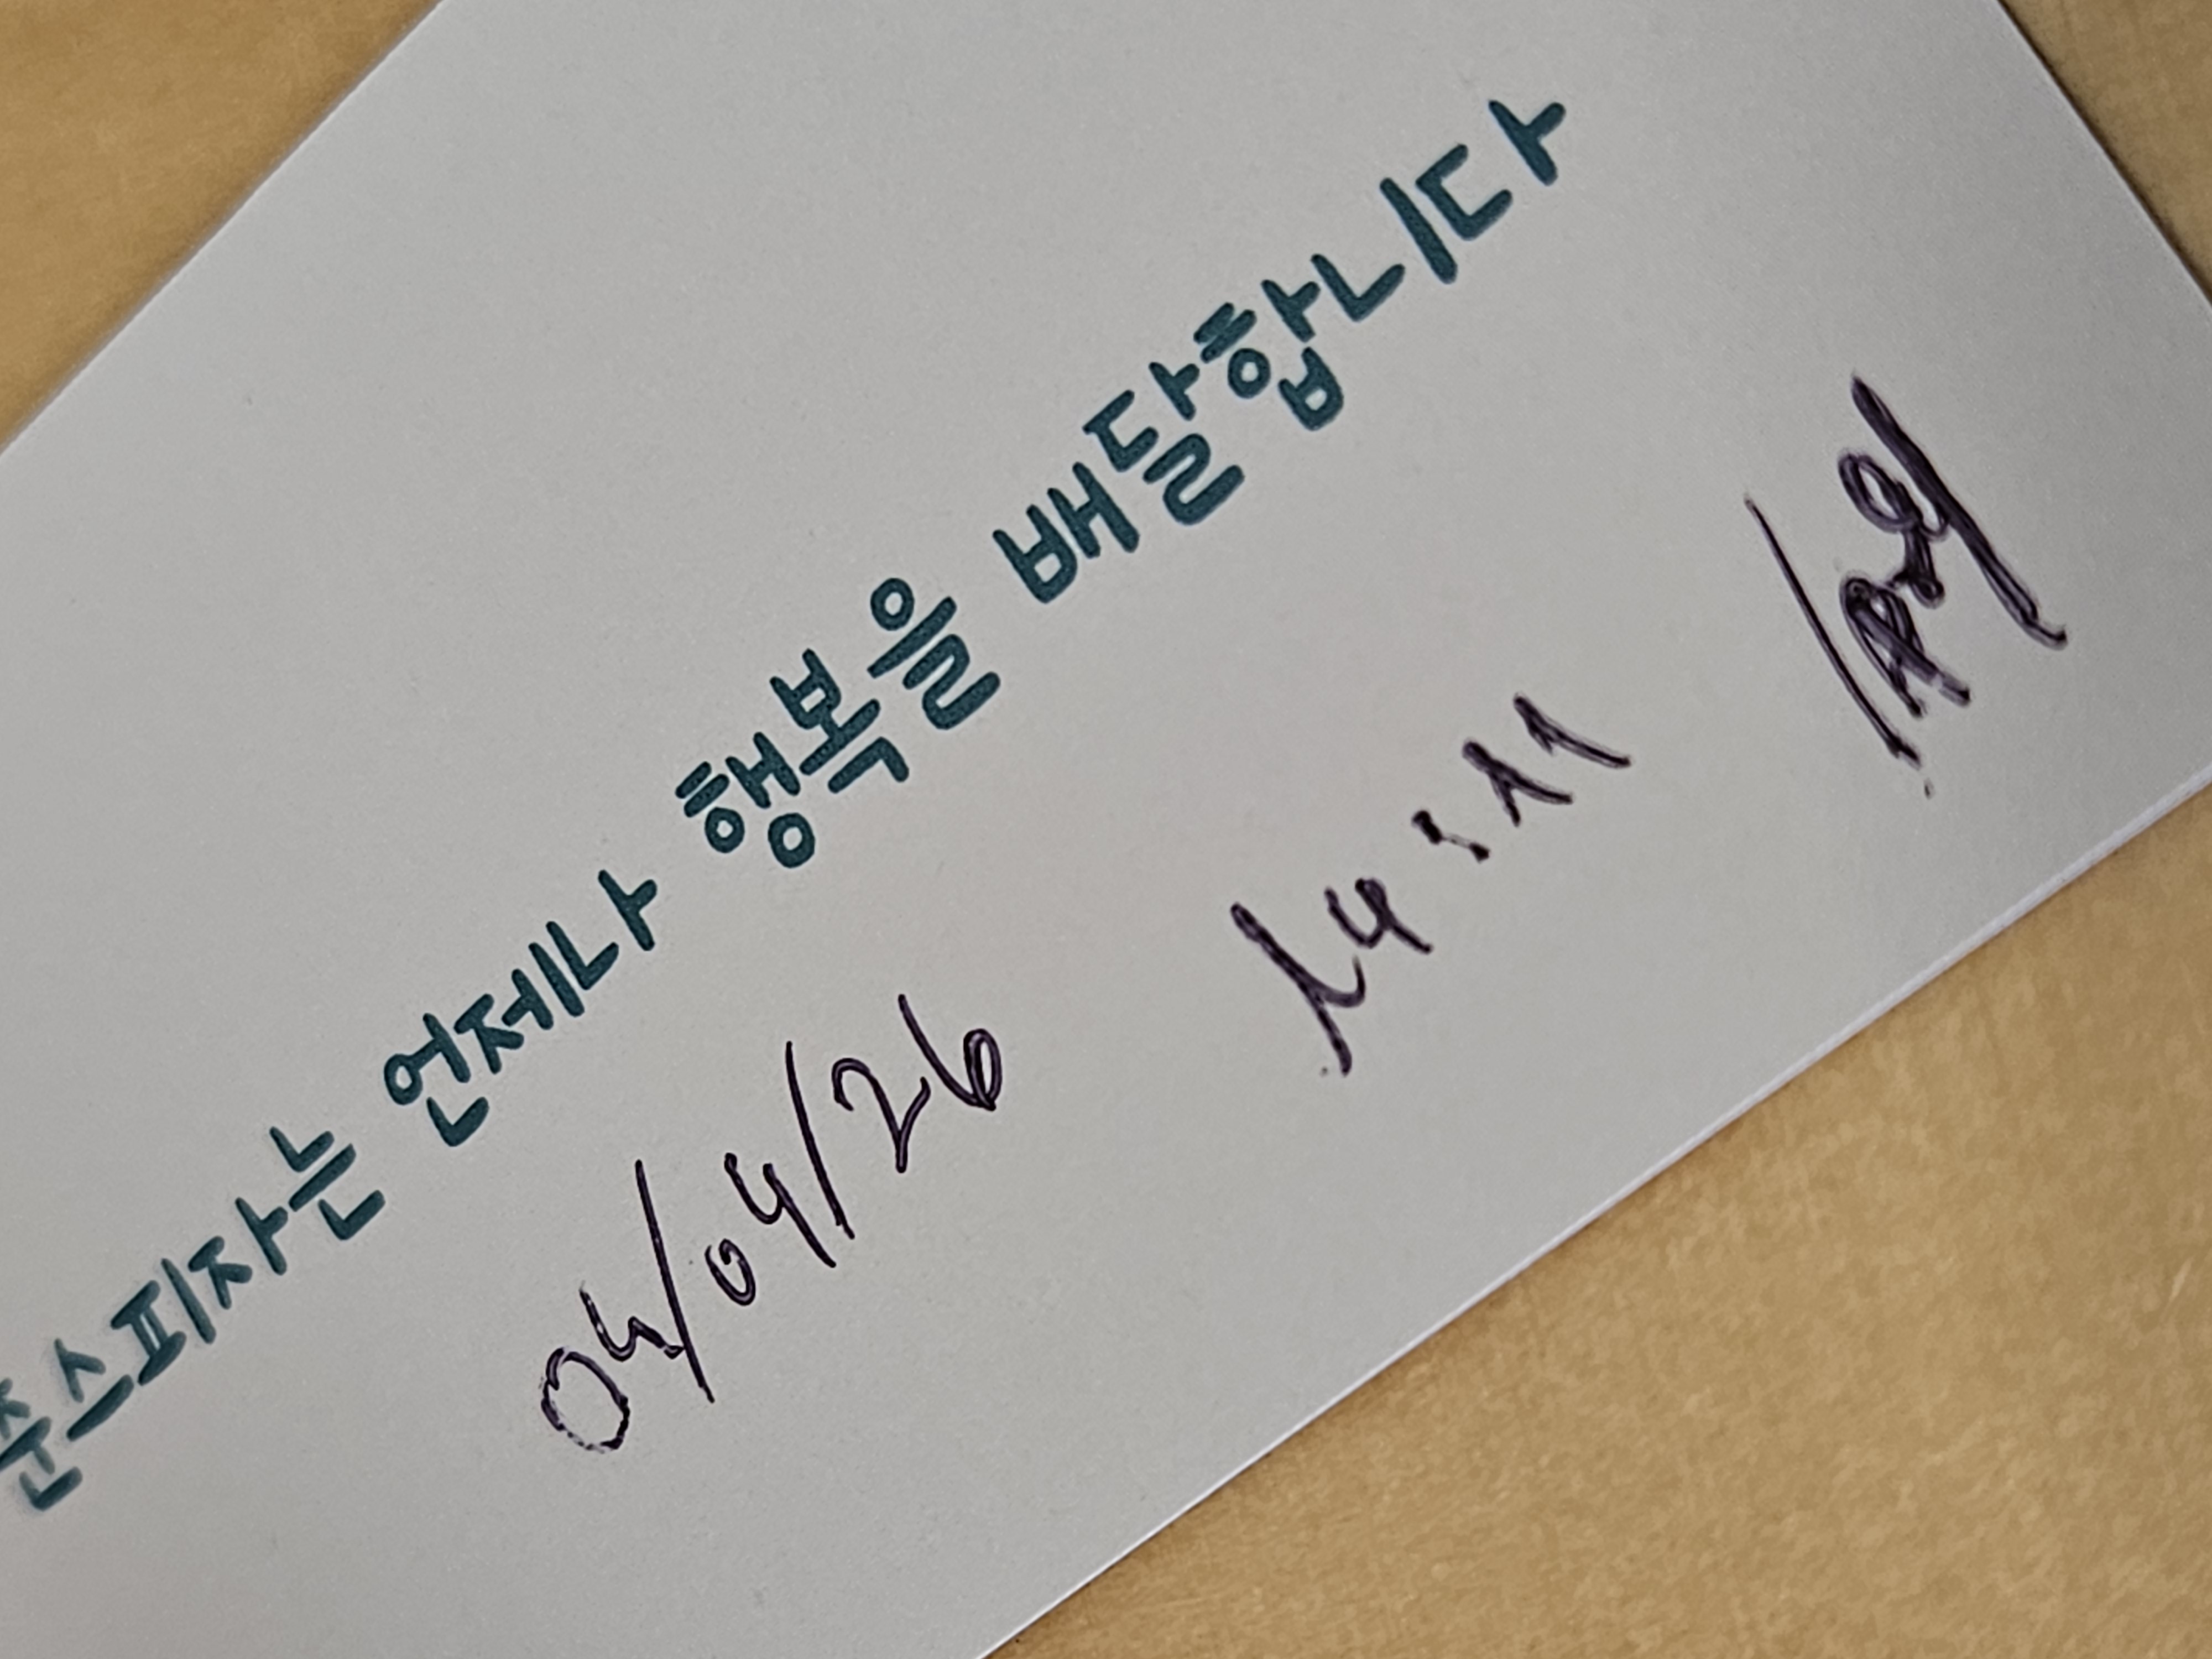 준스피자는 언제나 행복을 배달합니다
04/04/26 14:11